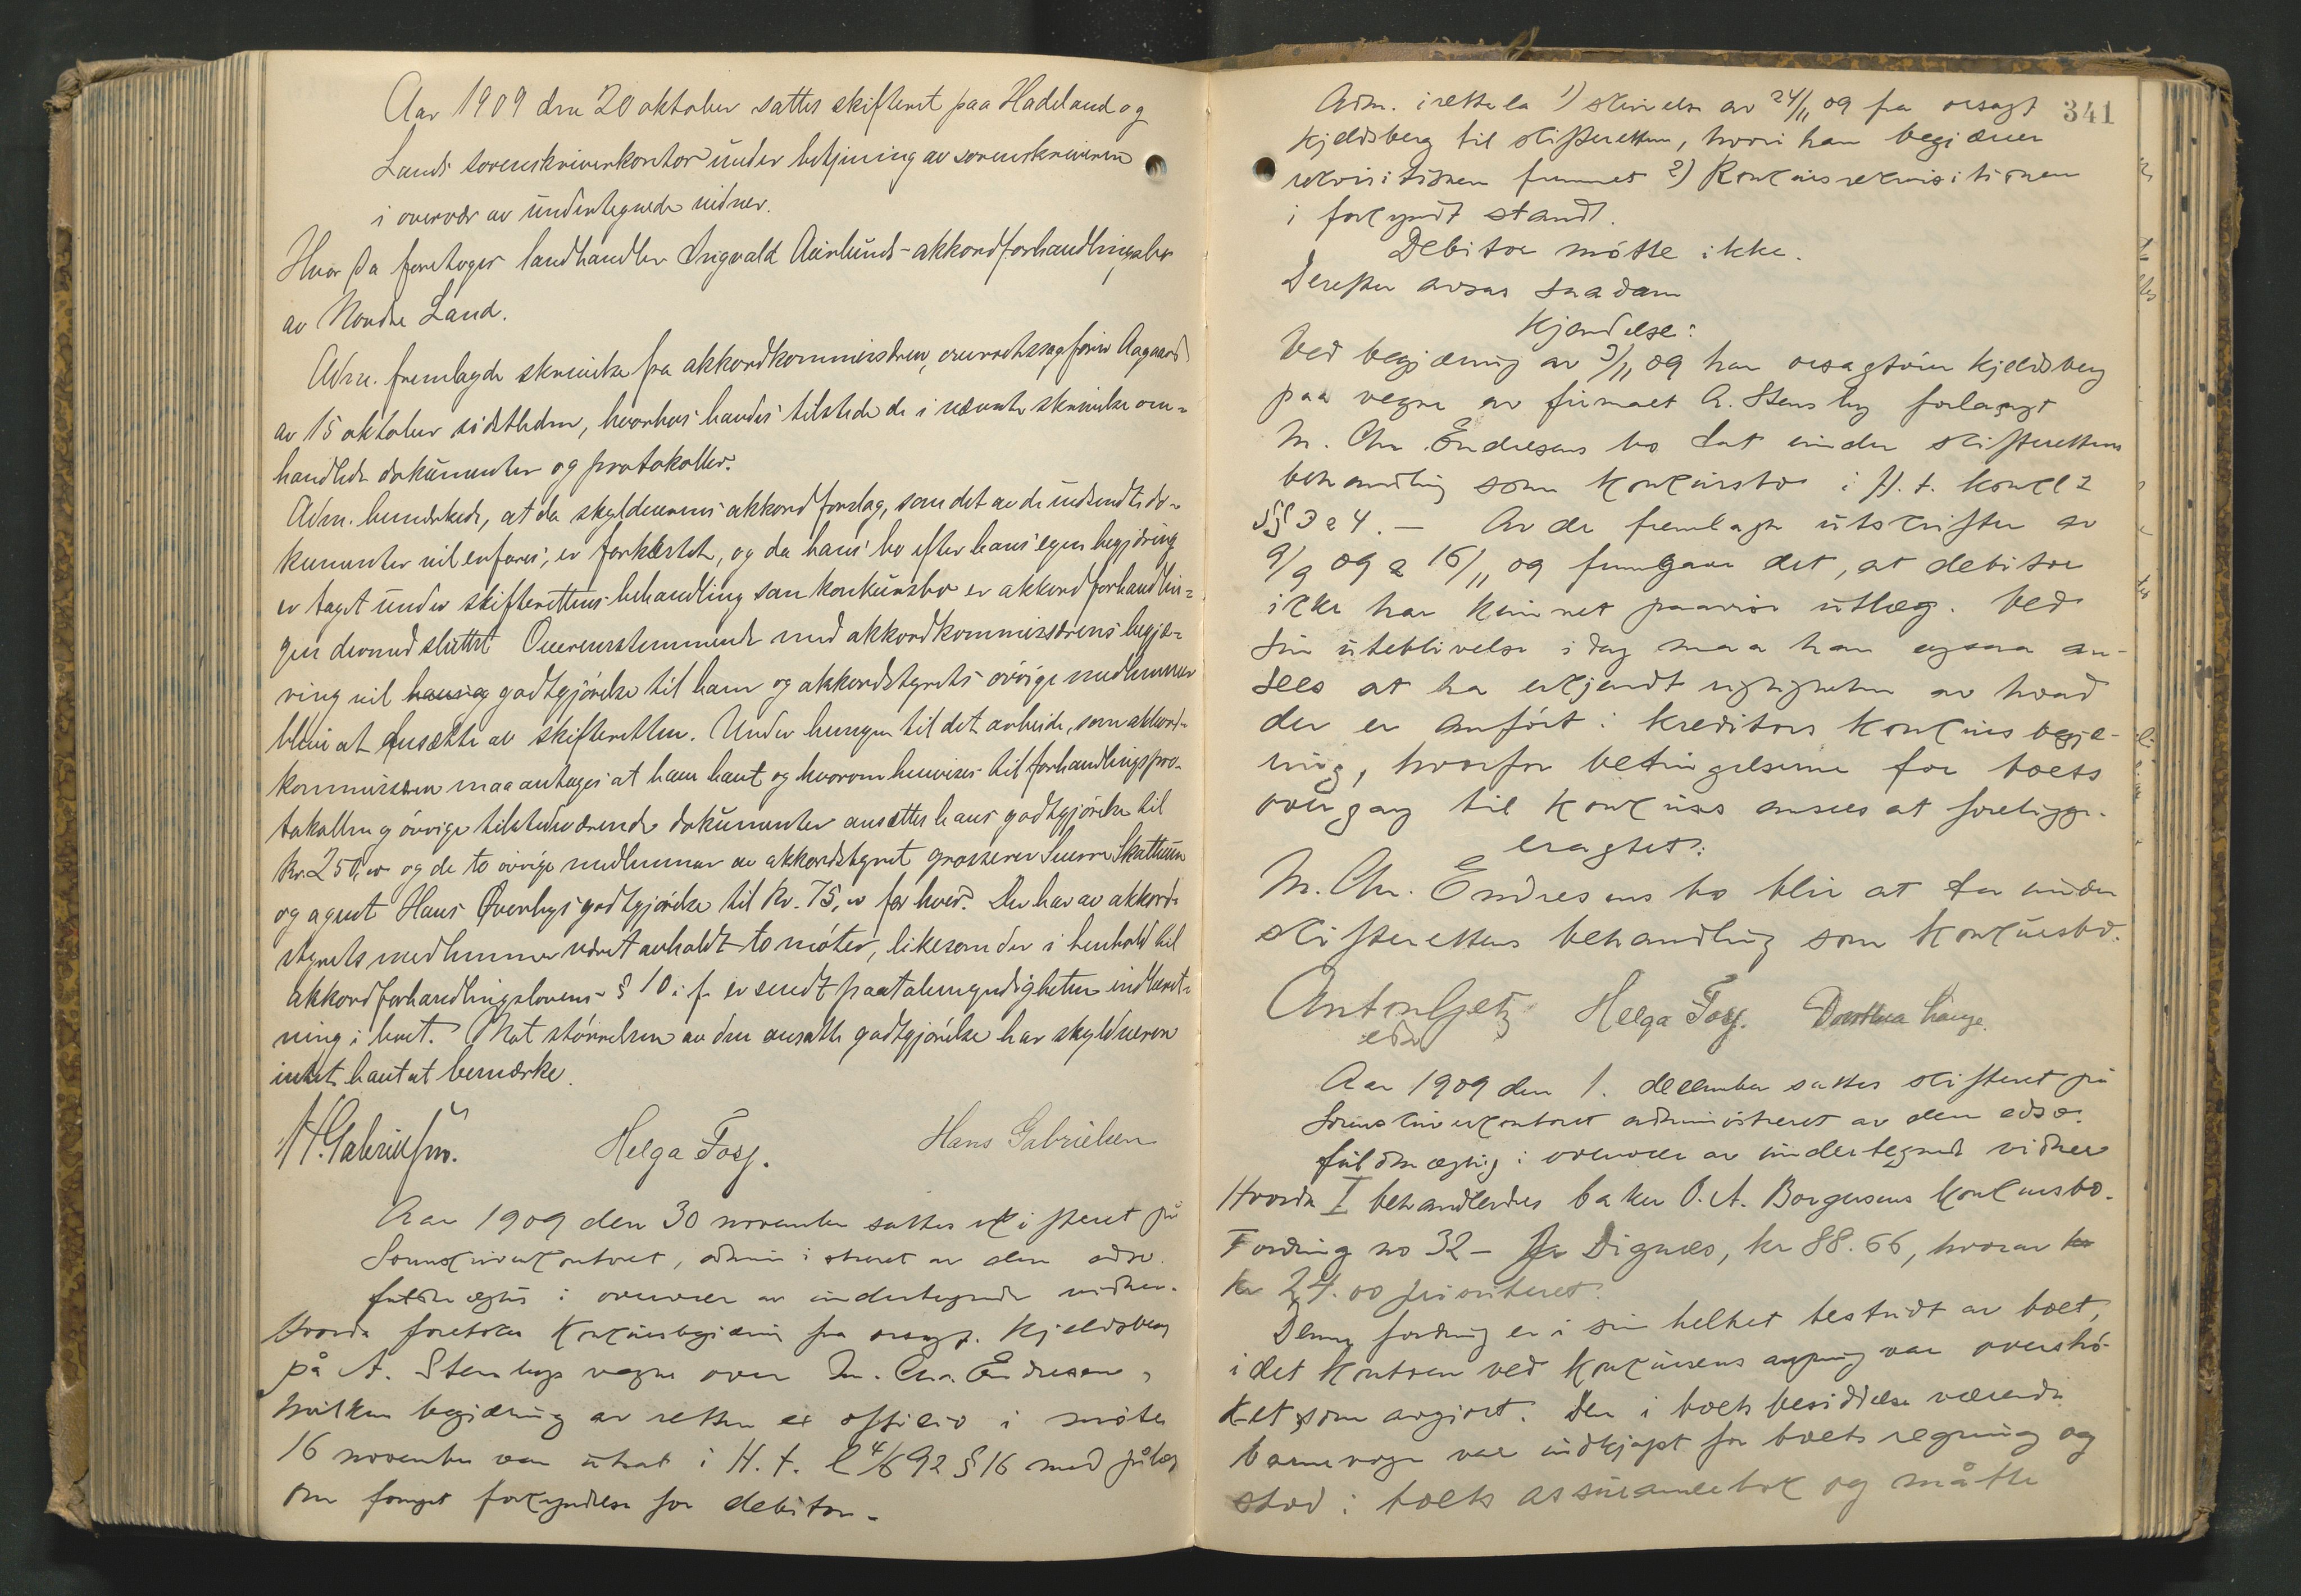 Aar 1909 den 20 oktober sattes skifteret paa Hadeland og
Lands sorenskriverkontor under betjening av sorenskriveren
i overvær av undertegnede vidner.
Hvor da foretoges landhandler Ingvald Aurlunds akkordforhandlingsbo
av Nordre Land.
Adm. fremlagde skrivelse fra akkordkommissæren, overretssagfører Aagaard
av 15 oktober sidstleden, hvorhos havdes tilstede de i nævnte skrivelse om-
handlede dokumenter og protokoller.
Adm. bemerkede, at da skyldnerens akkordforslag, som det av de indsendte do-
kumenter vil erfares, er forkastet, og da hans bo efter hans egen begjæring
er taget under skifterettens behandling som konkursbo er akkordforhandlin-
gen dermed sluttet. Overensstemmende med akkordkommissærens begjæ-
ring vil godtgjørelse til ham og akkordstyrets øvrige medlemmer
blive at fastsætte av skifteretten. Under hensyn til det arbeide, som akkord-
kommissæren maa antages at ham havt og hvorom henvises til forhandlingspro-
tokollen og øvrige tilstedeværende dokumenter ansættes hans godtgjørelse til
kr. 250,00 og de to øvrige medlemmer av akkordstyret grosserer Sverre Skattum
og agent Hans Øverbys godtgjørelse til kr. 75,00 for hver. Der har av akkord-
styrets medlemmer været avholdt to møter, likesom der i henhold til
akkordforhandlingslovens § 10 i. f. er sendt paatalemyndigheten indberet-
ning i boet. Mot størrelsen av den ansatte godtgjørelse har skyldneren
intet havt at bemærke.
H. Gabrielsen. Helga Fosz. Hans Gabrielsen
Aar 1909 den 30 november sattes skifteret på
Sorenskriverkontoret, administreret av den edsv.
fuldmægtig i overvær av undertegnede vidner.
Hvorda foretokes konkursbegjæring fra orsagf. Kjeldsberg
på A. Stensbys vegne over M. Chr. Endresen,
hvilken begjæring av retten ex officio i møte
16 november var utsat i H. t. l 4/6 92 § 16 med pålæg
om fornyet forkyndelse for debitor.
341
Adm. irettela 1) skrivelse av 24/11 09 fra orsagf
Kjeldsberg til skifteretten, hvori han begjærer
rekvisitionen fremmet 2) Konkursrekvisitionen
i forkyndt stand.
Debitor møtte ikke.
Derefter avsas saadan
Kjendelse:
Ved begjæring av 3/11 09 har orsagfører Kjeldsberg
paa vegne av firmaet A. Stensby forlangt
M. Chr Endresens bo tat under skifterettens
behandling som konkursbo i H. t. konkl
§§ 3 & 4. — Av de fremlagte utskrifter av
9/9 09 & 16/11 09 fremgaar det, at debitor
ikke har kunnet paavise utlæg. Ved
sin uteblivelse idag maa han ogsaa an-
sees at ha erkjendt rigtigheten av hvad
der er anført i kreditors konkursbegjæ-
ring, hvorfor betingelserne for boets
overgang til konkurs ansees at foreligge.
eragtet:
M. Chr. Endresens bo blir at ta under
skifterettens behandling som konkursbo.
Anton Getz Helga Fosz. Dorothea Lange.
edsv
Aar 1909 den 1. december sattes skifteret på
Sorenskriverkontoret administreret av den edsv.
fuldmægtig i overvær av undertegnede vidner
Hvorda I behandledes baker O. A. Borgersens konkursbo.
Fordring no 32 — Dignæs, kr 88.66, hvorav
kr 24.00 prioriteret.
Denne fordring er i sin helhet bestridt av boet,
idet kontoen ved konkursens aapning var overstrø-
ket som avgjort. Den i boets besiddelse værende
barnevogn var indkjøpt for boets regning og
stod i boets assurancebok og måtte